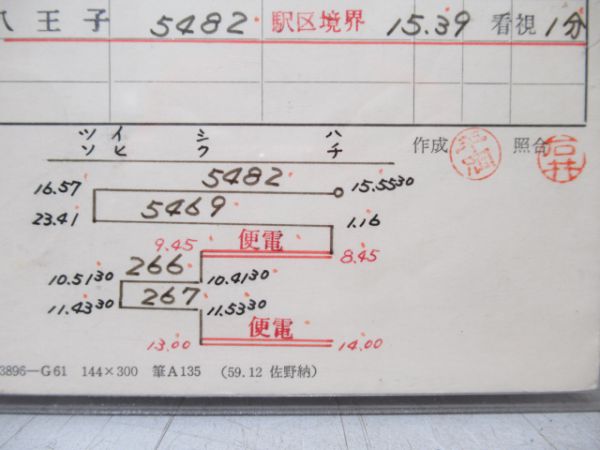 八王子 5482 駅区境界 15.39 看視1分
ツソ イヒ シフ ハチ 作成 照合
16.57 5482 15.5530
23.41 5469 1.16
9.45 便電 8.45
10.5130 266 10.4130
11.4330 267 11.5330
13.00 便電 14.00
3896—G61 144×300 筆A135 (59.12 佐野納)